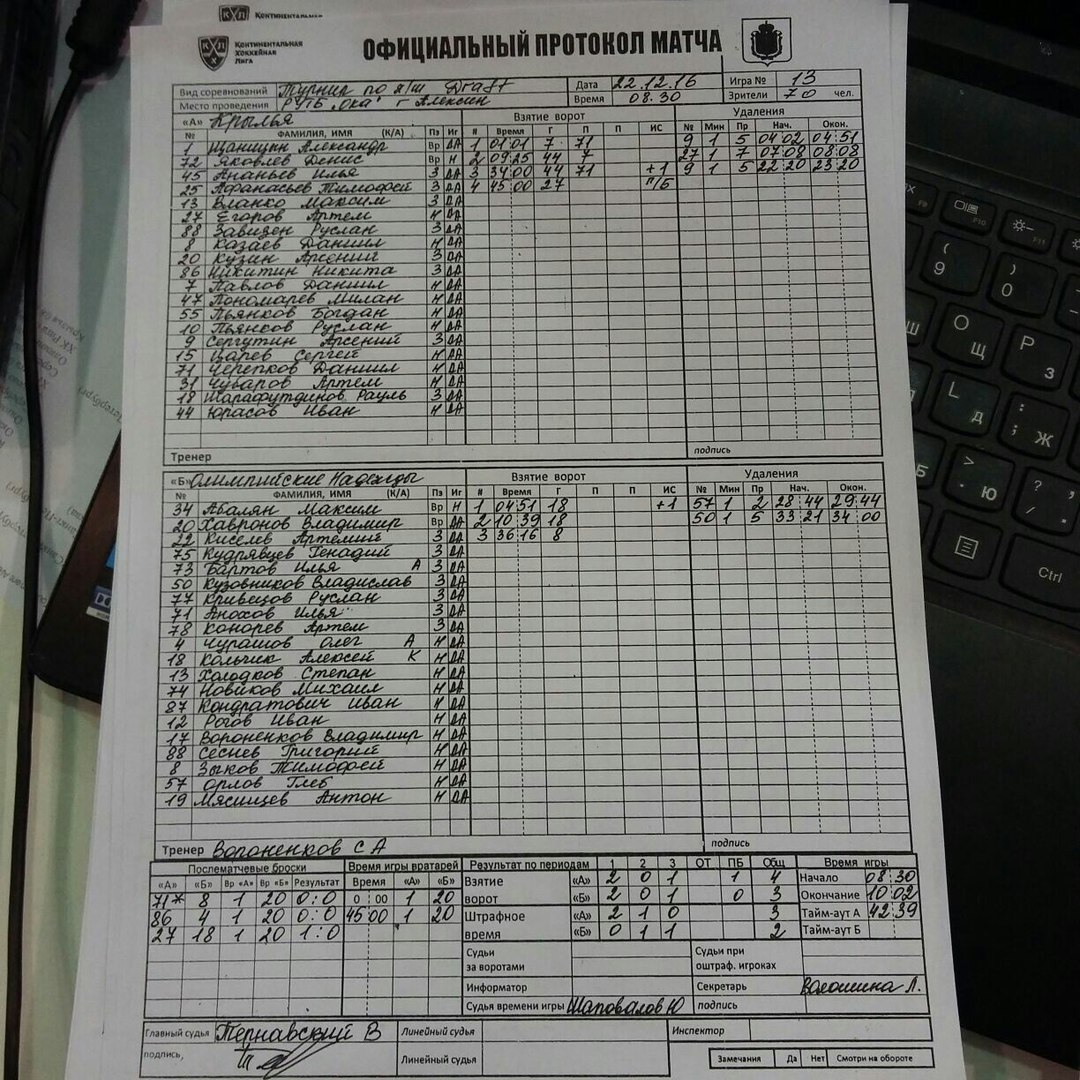 КХЛ Континентальная
КХЛ Континентальная Хоккейная Лига
ОФИЦИАЛЬНЫЙ ПРОТОКОЛ МАТЧА
Вид соревнований Турнир по х/ш Draft Дата 22.12.16 Игра № 13
Место проведения РУТБ "Ока" г Алексин Время 08.30 Зрители 70 чел.
«А» Крылья Взятие ворот Удаления
№ ФАМИЛИЯ, ИМЯ (К/А) Пз Иг # Время Г П П ИС № Мин Пр Нач. Окон.
1 Щаницын Александр Вр ДА 1 01:01 7 71 9 1 5 04 02 04 51
72 Яковлев Денис Вр Н 2 09:25 44 7 27 1 7 07:08 08:08
45 Ананьев Илья З ДА 3 34:00 44 71 +1 9 1 5 22 20 23 20
25 Афанасьев Тимофей З ДА 4 45:00 27 П/Б
13 Бланко Максим З ДА
27 Егоров Артем Н ДА
88 Завизен Руслан З ДА
8 Казаев Даниил Н ДА
20 Кузин Арсений З ДА
86 Никитин Никита З ДА
7 Павлов Даниил Н ДА
47 Пономарев Милан Н ДА
55 Пьянков Богдан Н ДА
10 Пьянков Руслан Н ДА
9 Сергутин Арсений З ДА
15 Царев Сергей Н ДА
71 Черепков Даниил Н ДА
31 Чуваров Артем Н ДА
18 Шарафутдинов Рауль З ДА
44 Юрасов Иван Н ДА
Тренер подпись
«Б» Олимпийские Надежды Взятие ворот Удаления
№ ФАМИЛИЯ, ИМЯ (К/А) Пз Иг # Время Г П П ИС № Мин Пр Нач. Окон.
34 Абалян Максим Вр Н 1 04:51 18 +1 57 1 2 28:44 29:44
20 Хавронов Владимир Вр ДА 2 10:39 18 50 1 5 33 21 34 00
22 Киселев Артемий З ДА 3 36:16 8
75 Кудрявцев Генадий З ДА
73 Бартов Илья А З ДА
50 Кузовников Владислав З ДА
77 Кривецов Руслан З ДА
71 Анохов Илья З ДА
78 Конорев Артем З ДА
4 Чурашов Олег А Н ДА
18 Кольчик Алексей К Н ДА
13 Холодков Степан Н ДА
74 Новиков Михаил Н ДА
87 Кондратович Иван Н ДА
12 Рогов Иван Н ДА
17 Вороненков Владимир Н ДА
88 Сеснев Григорий Н ДА
8 Зыков Тимофей Н ДА
57 Орлов Глеб Н ДА
19 Мясищев Антон Н ДА
Тренер Вороненков С А подпись
Послематчевые броски Время игры вратарей Результат по периодам 1 2 3 ОТ ПБ Общ Время игры
«А» «Б» Вр «А» Вр «Б» Результат Время «А» «Б» Взятие ворот «А» 2 0 1 1 4 Начало 08:30
71* 8 1 20 0:0 0:00 1 20 «Б» 2 0 1 0 3 Окончание 10 02
86 4 1 20 0:0 45 00 1 20 Штрафное время «А» 2 1 0 3 Тайм-аут А 42:39
27 18 1 20 1:0 «Б» 0 1 1 2 Тайм-аут Б
Судьи за воротами Судьи при оштраф. игроках
Информатор Секретарь Волошина Л.
Судья времени игры Шаповалов Ю подпись
Главный судья Тернавский В Линейный судья Инспектор
подпись, Линейный судья Замечания Да Нет Смотри на обороте